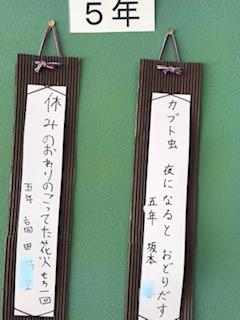 5年
カブト虫 夜になると おどりだす
五年 坂本
休みのおわりのこってた花火もう一回
五年 高田